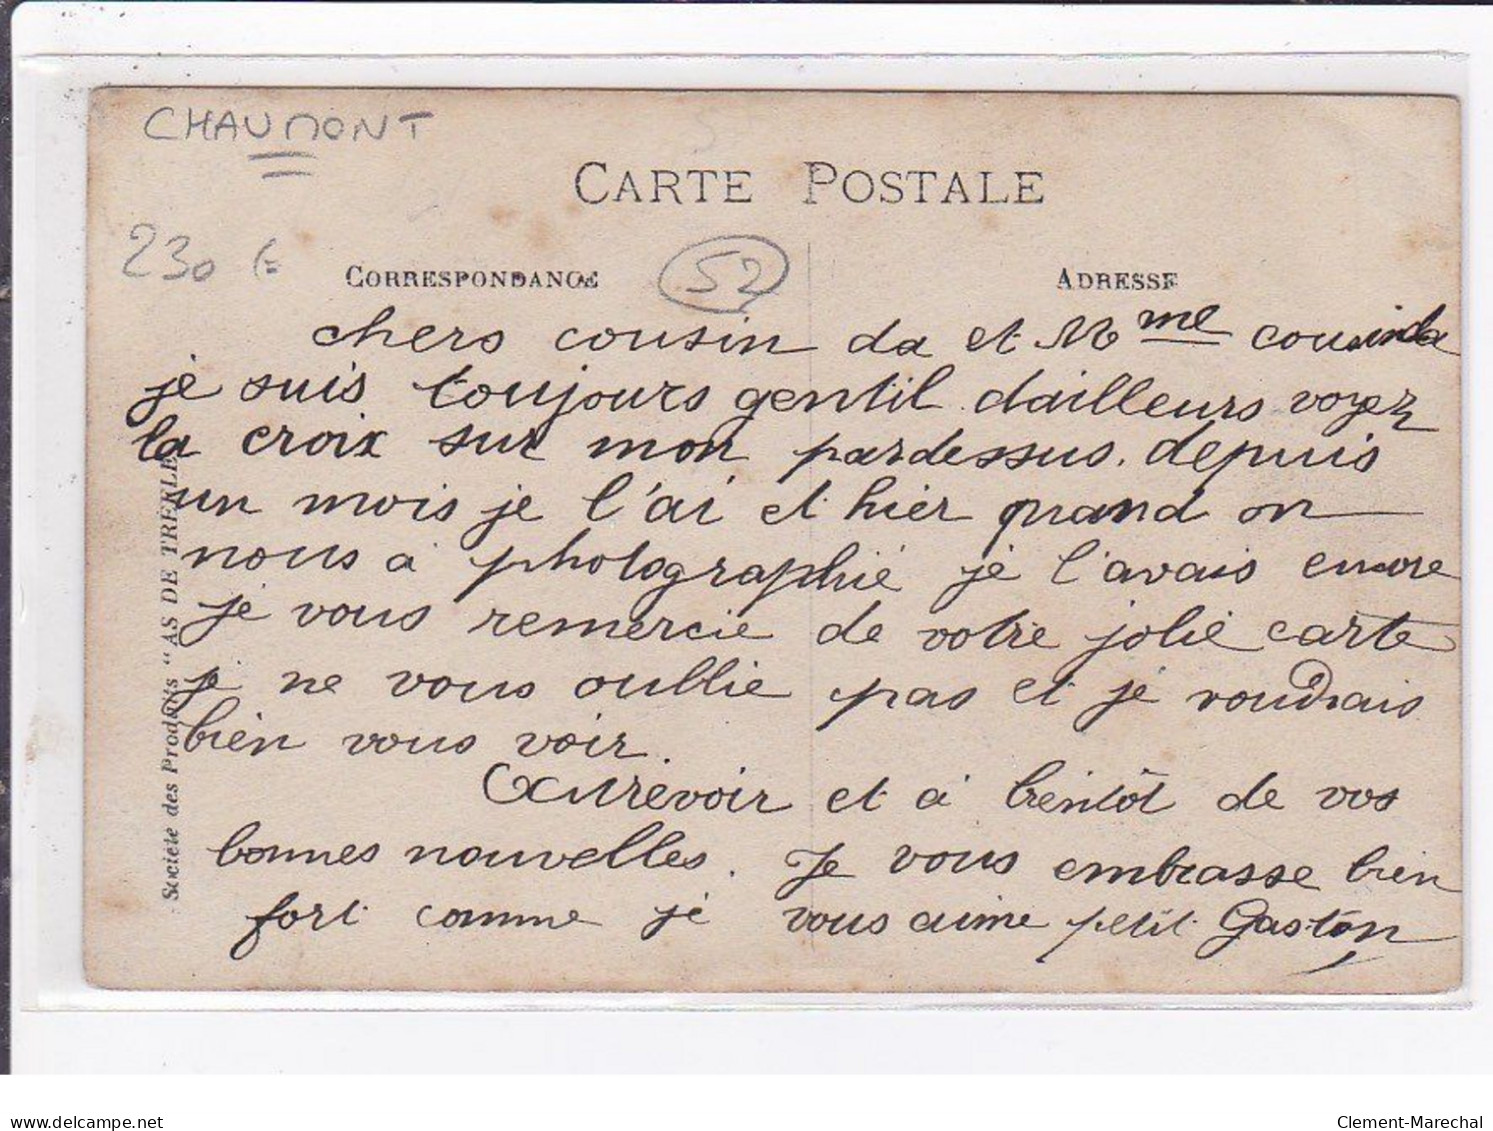 CHAUMONT
CARTE POSTALE
230 €
52
CORRESPONDANCE
ADRESSE
chers cousin da et Mme cousinda
je suis toujours gentil dailleurs voyez
la croix sur mon pardessus. depuis
un mois je l'ai et hier quand on
nous a photographié je l'avais encore
je vous remercie de votre jolie carte
je ne vous oublie pas et je voudrais
bien vous voir.
Aurevoir et à bientôt de vos
bonnes nouvelles. Je vous embrasse bien
fort comme je vous aime petit Gaston
Société des Produits "AS DE TREFLE
delcampe.net
Clement-Marechal